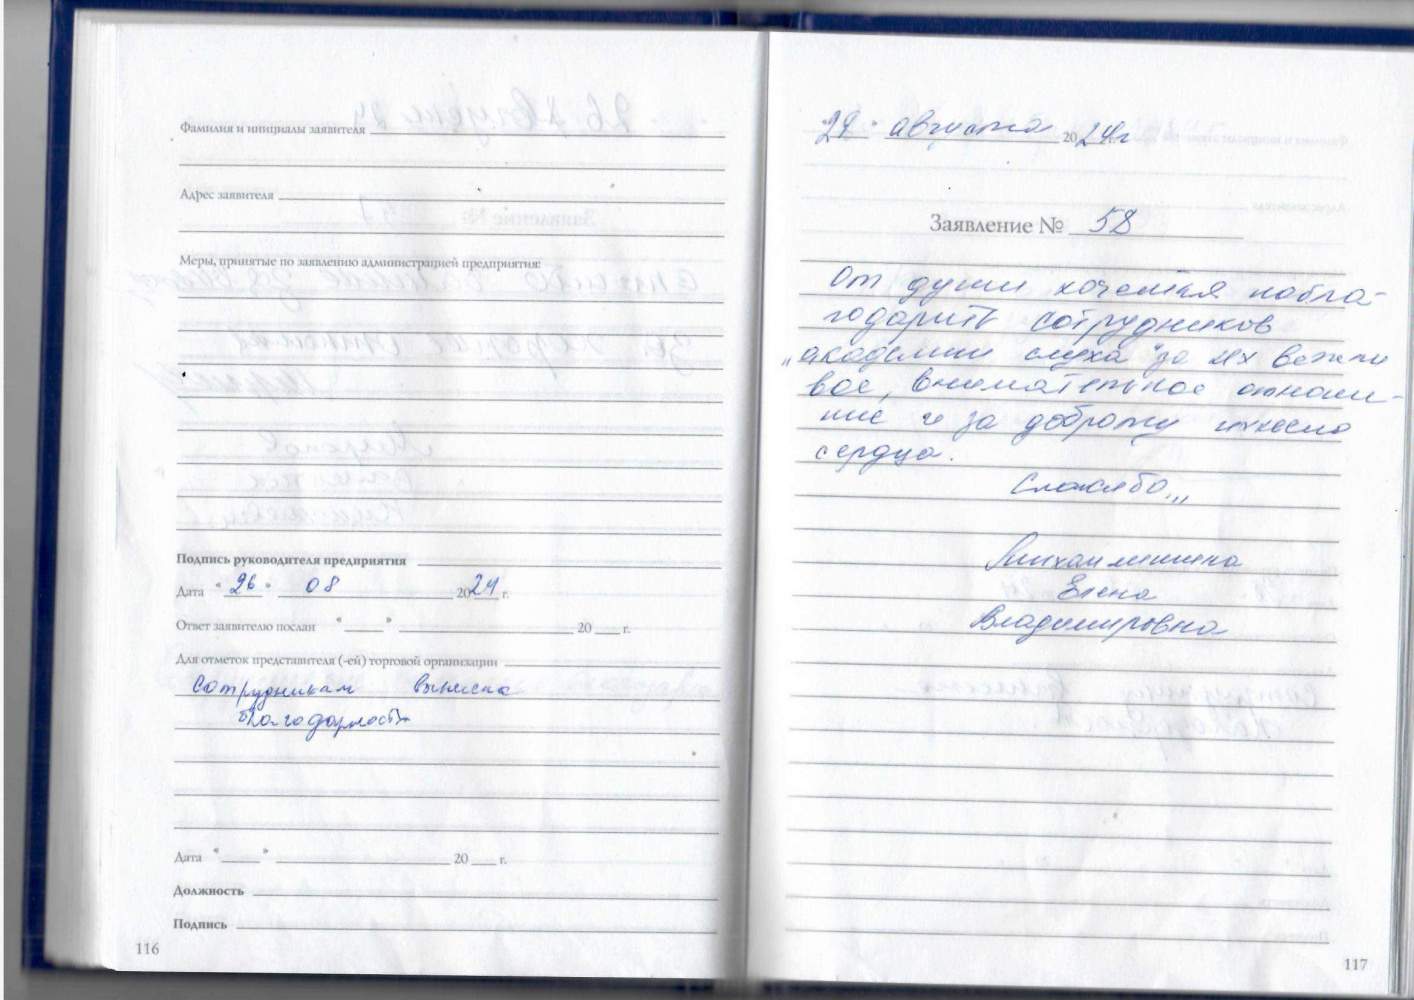 Фамилия и инициалы заявителя
Адрес заявителя
Меры, принятые по заявлению администрацией предприятия:
Подпись руководителя предприятия
Дата "26" 08 2024 г.
Ответ заявителю послан " " 20 г.
Для отметок представителя (-ей) торговой организации
Сотрудникам вынесена
благодарность
Дата " " 20 г.
Должность
Подпись
116
"29" августа 2024г
Заявление № 58
От души хочется побла-
годарить сотрудников
"академии слуха" за их вежли
вое, внимательное отноше-
ние и за доброту ихнего
сердца.
Спасибо,,,
Михайлишина
Елена
Владимировна
117